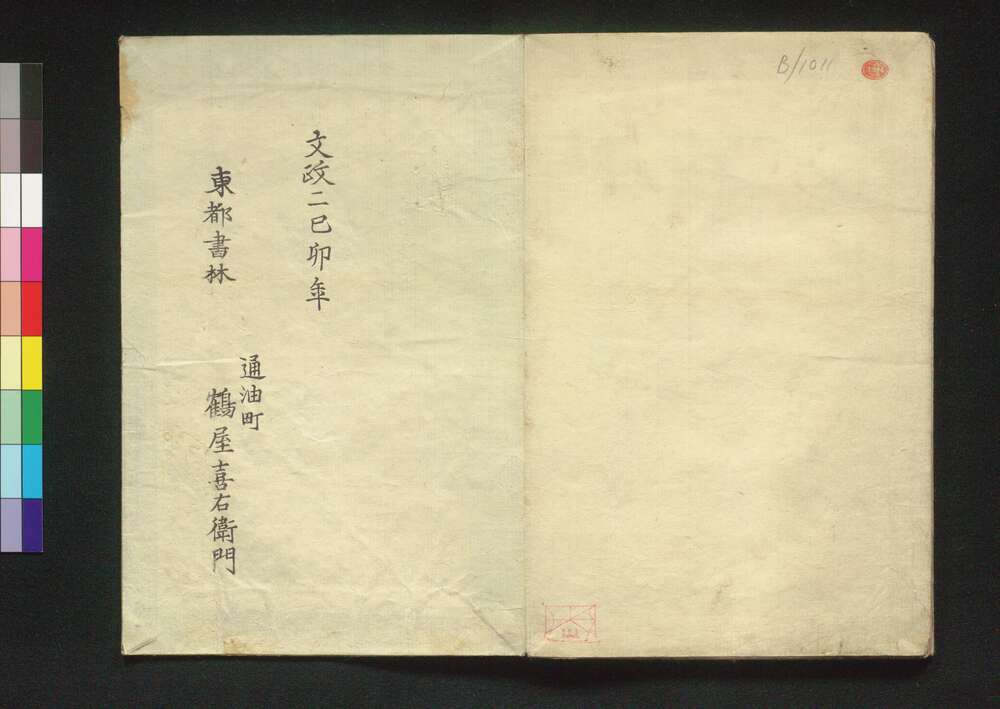 B/1011
文政二巳卯年
東都書林
通油町
鶴屋喜右衛門